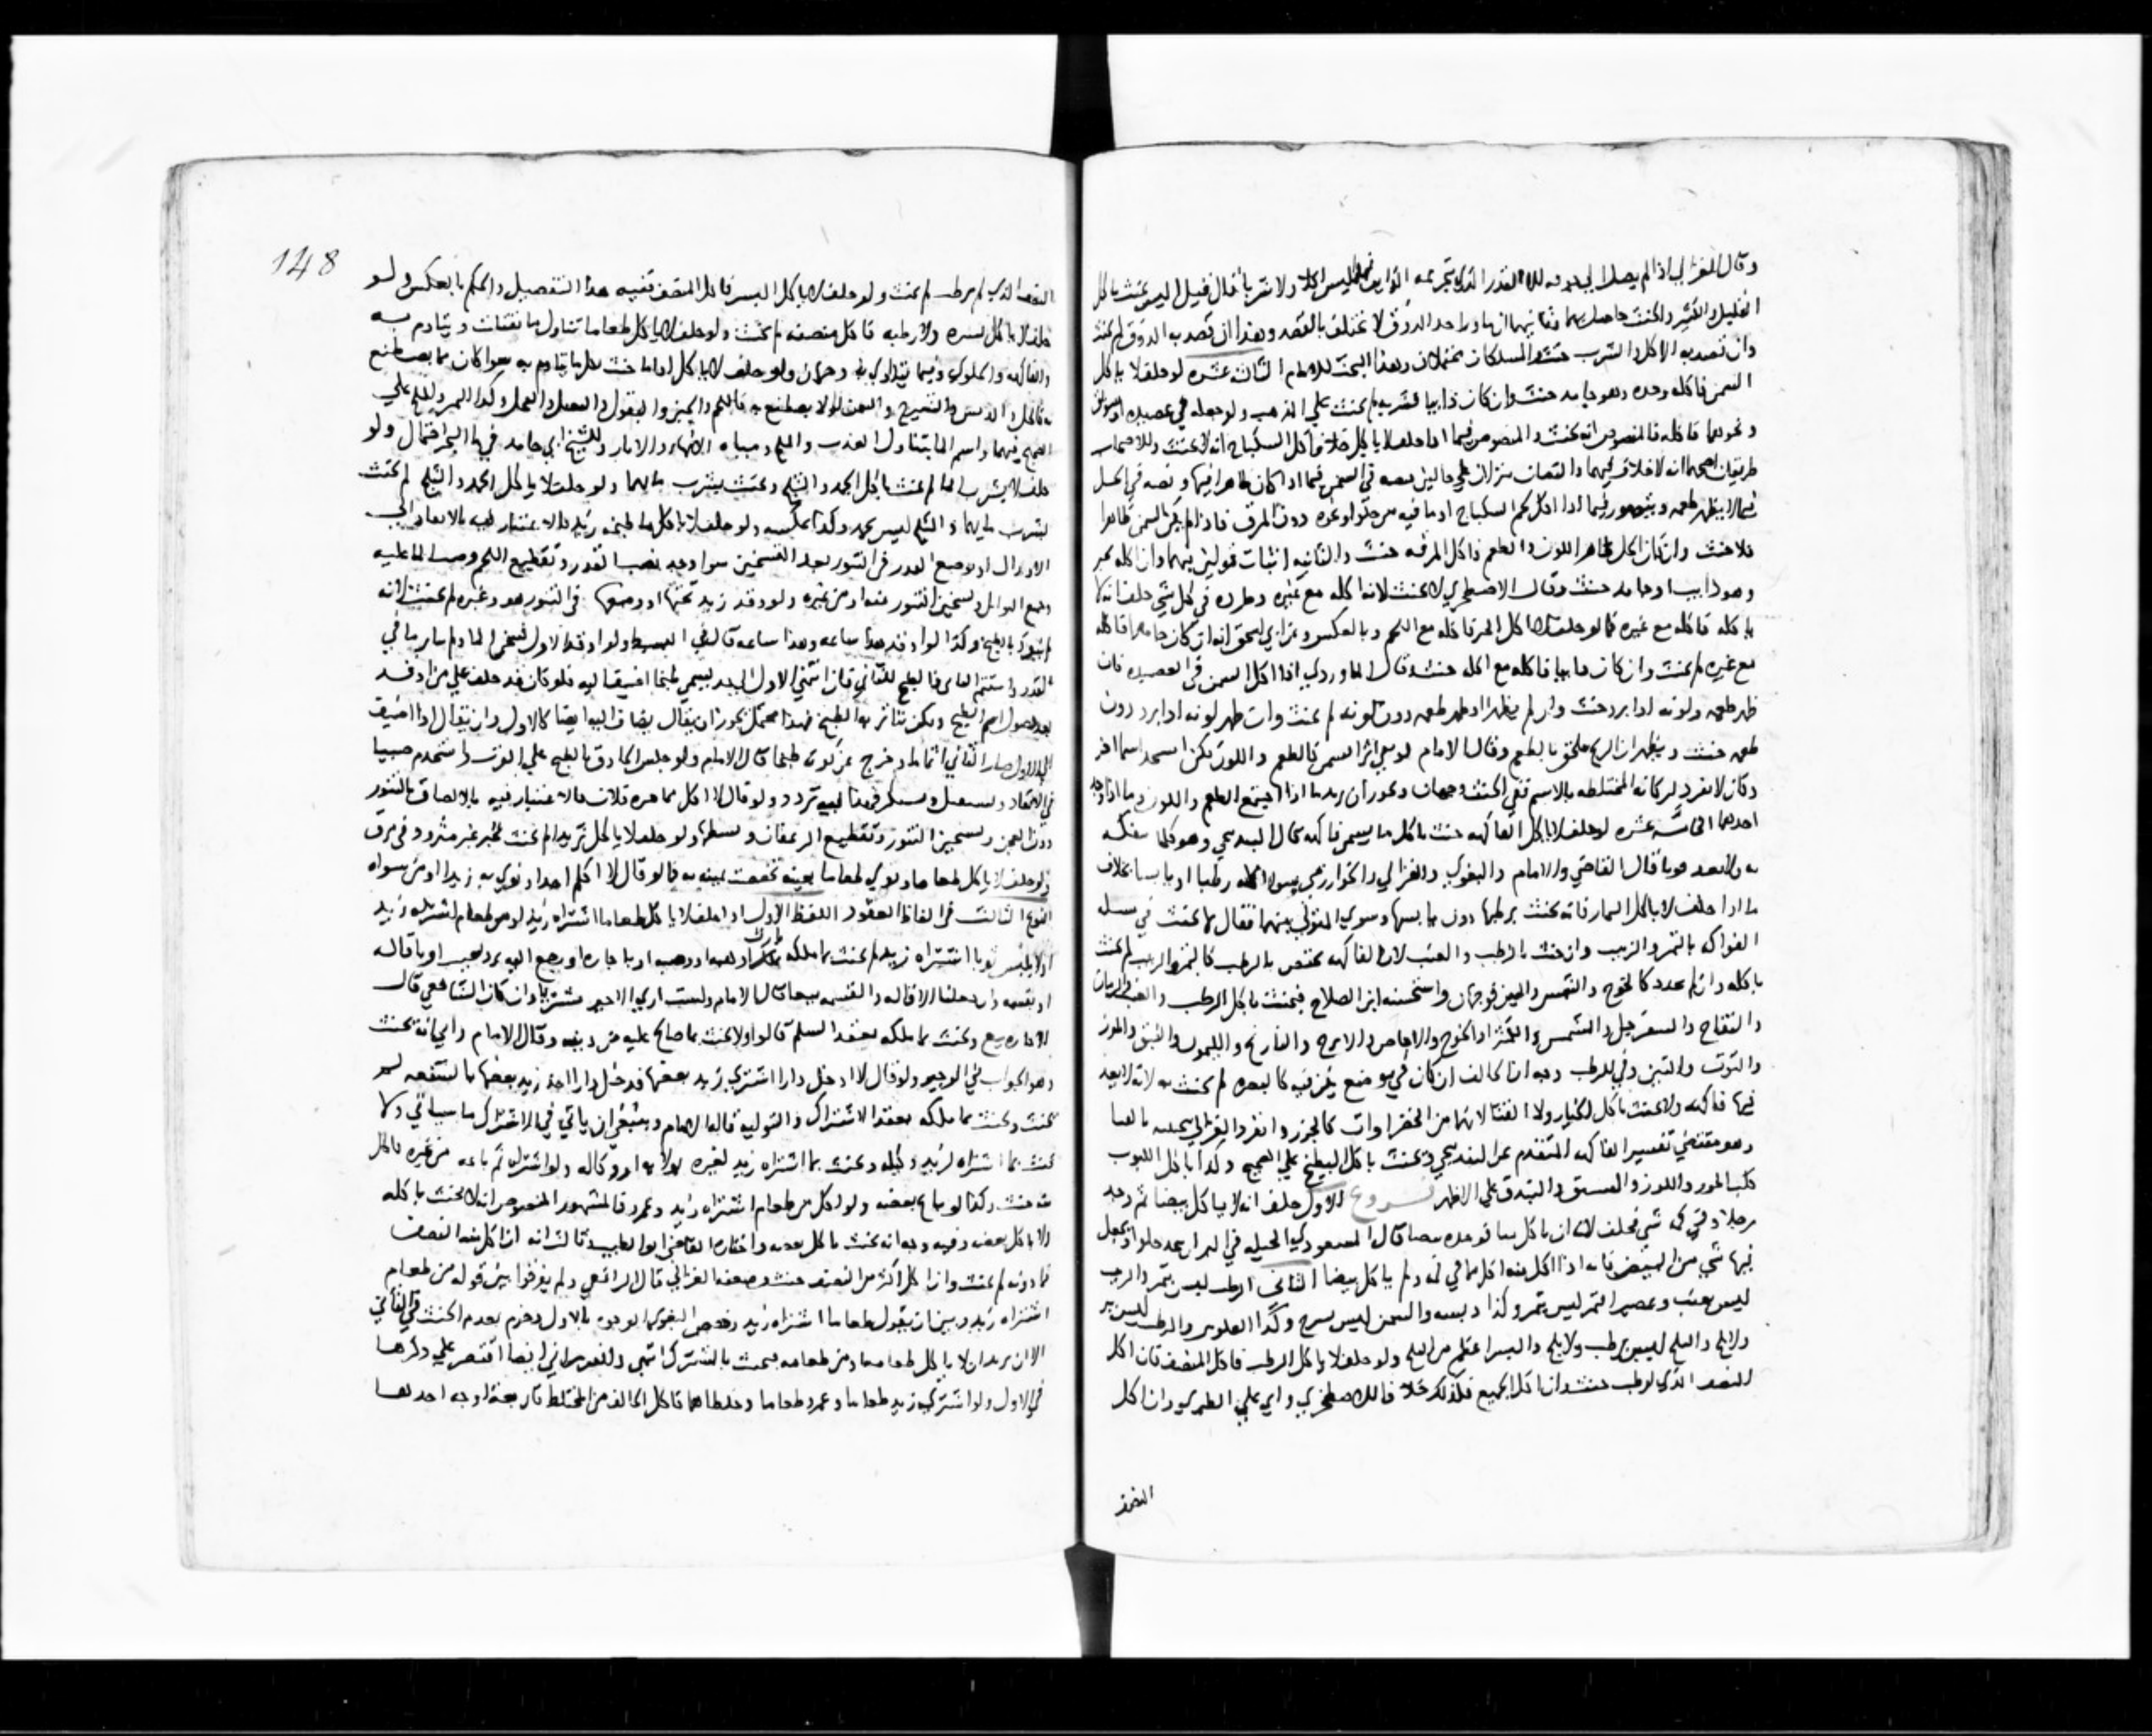 وقال الغزالي اذا لم يصل الى جوفه القدر الذي ولا شربا قال فيل يحنث باكل
القليل والكثير والحنث حاصل بهما لا تختلف بالقصد وهذا ان قصد به الذوق لم يحنث
وان قصد به الاكل والشرب حنث والمسلكان محتملان وهذا البحث للامام الثالث عشره لو حلف لا ياكل
السمن فاكله وحده وهو جامد حنث وان كان ذايبا فشربه لم يحنث على المذهب ولو جعله في عصيده او سويق
ونحوهما فاكله فالمنصوص انه يحنث والمنصوص فيما اذا حلف لا ياكل خلا فاكل السكباج انه لا يحنث وللاصحاب
طريقان اصحهما انه لا خلاف فيهما والنصان منزلان على حالين نصه في السمن فيما اذا كان ظاهرا فيها ونصه في الخل
فيما لا يظهر طعمه ويتصور فيما اذا اكل لحم السكباج او ما فيه من دون المرق فاذا لم يكن السمن ظاهرا
فلا حنث وان كان الخل ظاهر اللون والطعم فاكل المرقه حنث والثانيه اثبات قولين فيهما وان اكله بخبز
وهو ذايب او جامد حنث وقال الاصطخري لا يحنث لانه اكله مع غيره وطرده في كل شي حلف انه لا
ياكله فاكله مع غيره كما لو حلف لا ياكل الخبز فاكله مع اللحم وبالعكس وعن ابي اسحق انه ان كان جامدا فاكله
مع غيره لم يحنث وان كان ذايبا فاكله مع الخبز حنث قال الماوردي اذا اكل السمن في العصيده فان
ظهر طعمه ولونه اذا برد حنث وان لم يظهرا او ظهر طعمه دون لونه لم يحنث وان ظهر لونه اذا برد دون
طعمه حنث ويظهر ان الريح ملحق بالطعم وقال الامام لو بقي اثر السمن كالطعم واللون لكن استجد اسما اخر
احدهما الخامسه عشره لو حلف لا ياكل الفاكهه حنث باكل ما يسمى فاكهه قال البندنيجي وهو كلما يتفكه
به قال القاضي والامام والبغوي والغزالي والخوارزمي سوا اكله رطبا او يابسا بخلاف
ما اذا حلف لا ياكل الثمار فانه يحنث برطبها دون يابسها وسوى المتولي بينهما فقال لا يحنث في
الفواكه بالتمر والزبيب وان حنث بالرطب والعنب لان الفاكهه تختص بالرطب كالتمر والزبيب لم يحنث
باكله وان لم يجدد كالخوخ والمشمس والتين فوجهان واستحسنه ابن الصلاح فيحنث باكل الرطب والعنب والرمان
والتفاح والسفرجل والمشمس والكمثرا والخوخ والاجاص والاترج والنارنج والليمون والنبق والموز
والتوت والتين وفي الرطب وجه انه لم يحنث به لانه لا يعد
فيها فاكهه ولا يحنث باكل الخيار ولا القثا لانهما من الخضراوات كالجزر وانفرد الغزالي
وهو مقتضى تفسير الفاكهه المتقدم عن البندنيجي ويحنث باكل البطيخ على الصحيح وكذا باكل اللبوب
كلب الجوز واللوز والفستق والبندق على الاظهر فروع الاول حلف انه لا ياكل بيضا ثم وجد
رجلا وفي كمه شي فحلف لا بد ان ياكل مما في كمه بيضا قال المسعودي الحيله في البر ان يعمد حلوا ويجعل
فيها شي من البيض فانه اذا اكل منه اكل مما في كمه ولم ياكل بيضا الثاني الرطب ليس بتمر والزبيب
ليس بعنب وعصير التمر ليس بتمر وكذا دبسه والسمن ليس بسرج وكذا العلوس والرطب ليس ببسر
ولا بلح والبلح ليس برطب ولا بلح والبسر اعظم من البلح ولو حلف لا ياكل الرطب فاكل المنصف فان اكل
النصف الذي لرطب حنث وان اكل الجميع فكذلك خلافا للاصطخري وابي علي الطبري وان اكل
النصف
148
النصف الذي لم يرطب لم يحنث ولو حلف لا ياكل البسر فاكل المنصف ففيه هذا التفصيل والحكم بالعكس ولو
حلف لا ياكل بسره ولا رطبه فاكل منصفه لم يحنث ولو حلف لا ياكل طعاما تناول ما يقتات ويتادم به
والفاكهه والحلوى وفيما يتداوى به وجهان ولو حلف لا ياكل اداما حنث بكل ما يتادم به سوا كان مما يصطنع
به كالخل والدبس والشيرج والسمن او لا يصطنع به كاللحم والجبن والبقول والبصل والفجل وكذا التمر والملح على
الصحيح فيهما واسم الما يتناول العذب والملح ومياه الانهار والابار وللشيخ ابي حامد في ما البحر احتمال ولو
حلف لا يشرب الما لم يحنث باكل الجمد والثلج ويحنث بشرب مايهما ولو حلف لا ياكل الجمد والثلج لم يحنث
بشرب مايهما والثلج ليس بجمد وكذا عكسه ولو حلف لا ياكل ما طبخه زيد فالاعتبار فيه بالايقاد الى
الادراك او لوضع القدر في التنور بعد التسخين سوا وجد نصب القدر وتقطيع اللحم وصب الما عليه
وجمع التوابل وتسخين التنور منه او من غيره ولو اوقد زيد تحتها او وضعها في التنور هو وغيره لم يحنث لانه
لم ينفرد بالطبخ وكذا لو اوقد هذا ساعه وهذا ساعه قال في البسيط ولو اوقد الاول فسخن الما ولم يثر ما في
القدر واستتم الثاني فالطبخ للثاني فان انتهى الاول الى حد يسمى طبخا اضيف اليه فلو كان قد حلف على من اوقد
بعد حصول اسم الطبخ ولكن بتاثر به الطبخ فهذا محتمل يجوز ان يقال يضاف اليه ايضا كالاول وان يقال اذا اضيف
الى الاول صار الثاني اتماما وخرج عن كونه طبخا قال الامام ولو جلس الحاذق بالطبخ على القرب واستخدم صبيا
في الايقاد ففيه تردد ولو قال لا اكل مما خبزه فلان فالاعتبار فيه بالالصاق بالتنور
دون العجن وتسجير التنور وتقطيع الرغفان وبسطها ولو حلف لا ياكل ثريدا لم يحنث بخبز غير مثرود في مرق
ولو حلف لا ياكل طعاما ونوى طعاما بعينه تخصصت يمينه به كما لو قال لا اكلم احدا ونوى به زيدا او من سواه
النوع الثالث في الفاظ العقود اللفظ الاول اذا حلف لا ياكل طعاما اشتراه زيد او من طعام اشتراه زيد
او لا يلبس ثوبا اشتراه زيد لم يحنث بما ملكه بارث او هبه او وصيه او باجاره او رجع اليه برد بعيب او باقاله
او بقسمه وان جعلنا الاقاله والقسمه بيعا قال الامام ولست ارى الاجير مشتريا وان كان الشافعي قال
الاجاره بيع ويحنث بما ملكه بعقد السلم قالوا ولا يحنث بما صالح عليه من دينه وقال الامام راى انه يحنث
وهو الجواب في الوجيز ولو قال لا ادخل دارا اشترى زيد بعضها فدخل دارا اخذ زيد بعضها بالشفعه لم
يحنث ويحنث بما ملكه بعقد الاشتراك والتوليه قاله الامام وينبغي ان ياتي في الاشتراك ما سياتي ولا
يحنث بما اشتراه لزيد وكيله ويحنث بما اشتراه زيد لغيره بولايه او وكاله ولو اشتراه ثم باعه من غيره فاكل
منه حنث وكذا لو باع بعضه ولو اكل من طعام اشتراه زيد وعمرو فالمشهور المنصوص انه لا يحنث باكله
ولا باكل بعضه وفيه وجه انه يحنث باكل بعضه واختاره القاضي ابو الطيب وثالث انه ان اكل منه النصف
فما دونه لم يحنث وان اكل اكثر من النصف حنث وضعفه الغزالي قال الرافعي ولم يفرقوا بين قوله من طعام
اشتراه زيد وبين ان يقول طعاما اشتراه زيد وخصص البغوي الوجوه بالاول وجزم بعدم الحنث في الثاني
الا ان يريد ان لا ياكل طعامه او من طعامه فيحنث بالمشترك انتهى والفوراني ايضا اقتصر على ذكرها
في الاول ولو اشترى زيد طعاما وعمرو طعاما وخلطاهما فاكل الحالف من المختلط فاربعة اوجه احدها